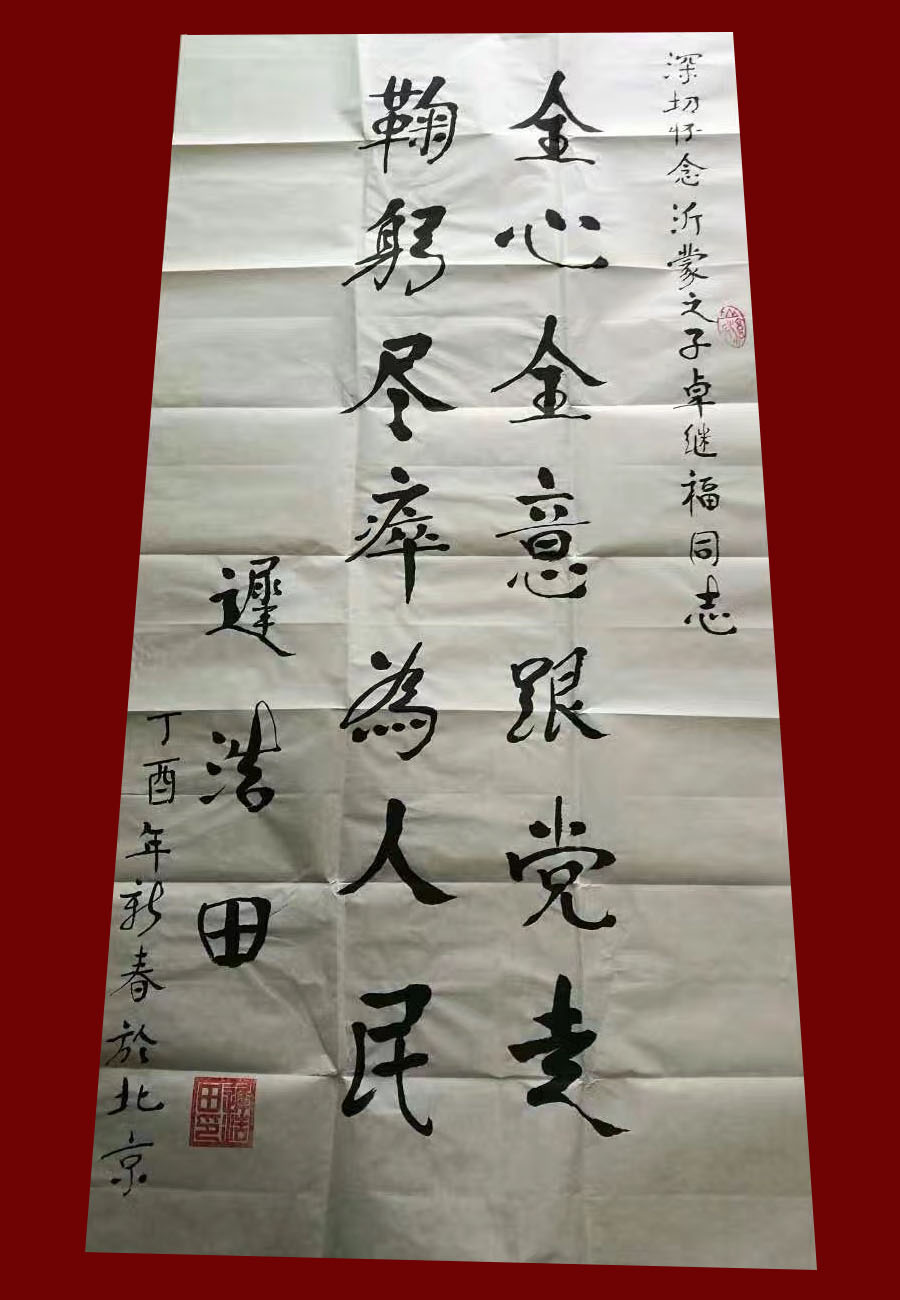 深切怀念沂蒙之子卓继福同志
全心全意跟党走
鞠躬尽瘁為人民
遲浩田
丁酉年新春於北京
遲浩田印